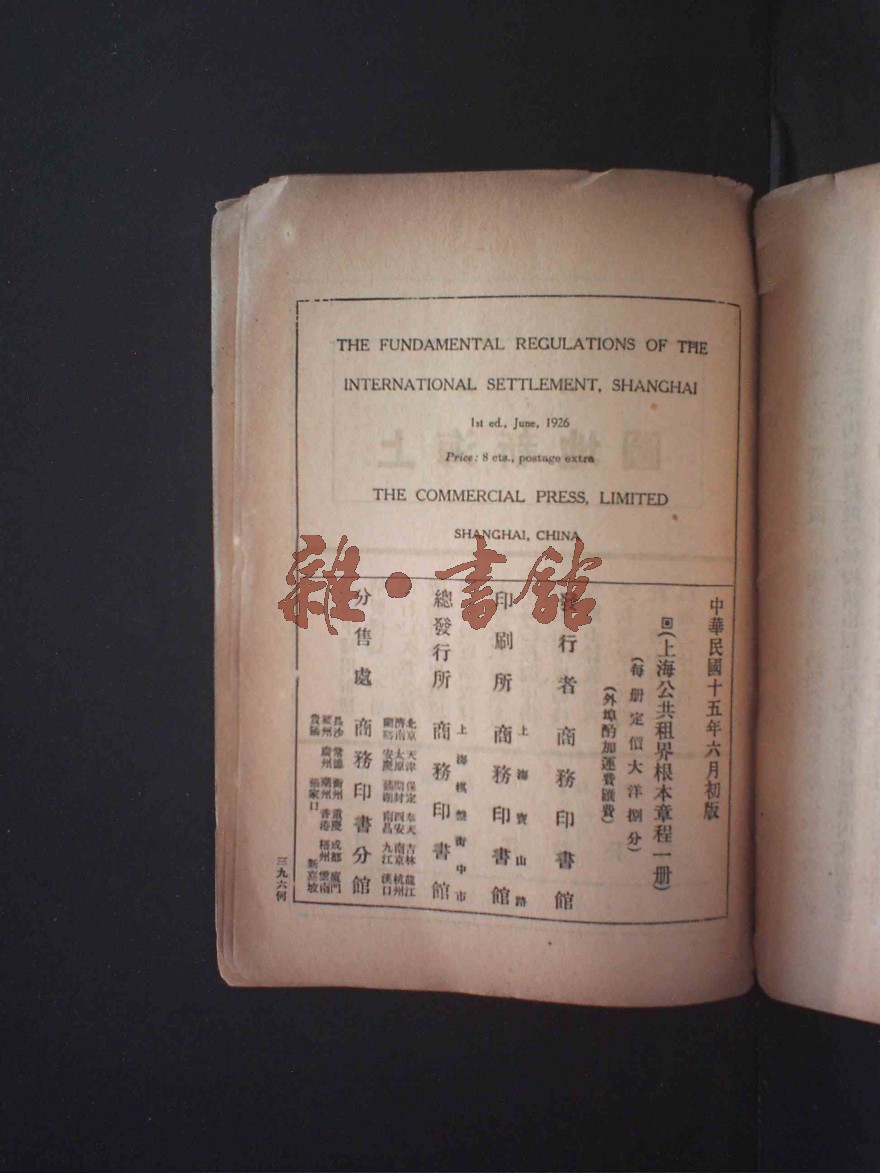 THE FUNDAMENTAL REGULATIONS OF THE
INTERNATIONAL SETTLEMENT, SHANGHAI
1st ed., June, 1926
Price: 8 cts., postage extra
THE COMMERCIAL PRESS, LIMITED
SHANGHAI, CHINA
雜·書館
中華民國十五年六月初版
回(上海公共租界根本章程一册)
(每册定價大洋捌分)
(外埠酌加運費匯費)
發行者 商務印書館
上海寶山路
印刷所 商務印書館
上海棋盤街中市
總發行所 商務印書館
北京 天津 保定 奉天 吉林 龍江
濟南 太原 開封 西安 南京 杭州
蘭谿 安慶 蕪湖 南昌 九江 漢口
分售處 商務印書分館
長沙 常德 衡州 重慶 成都 廈門
福州 廣州 潮州 香港 梧州 雲南
貴陽 張家口 新嘉坡
三九六何
上海新地圖